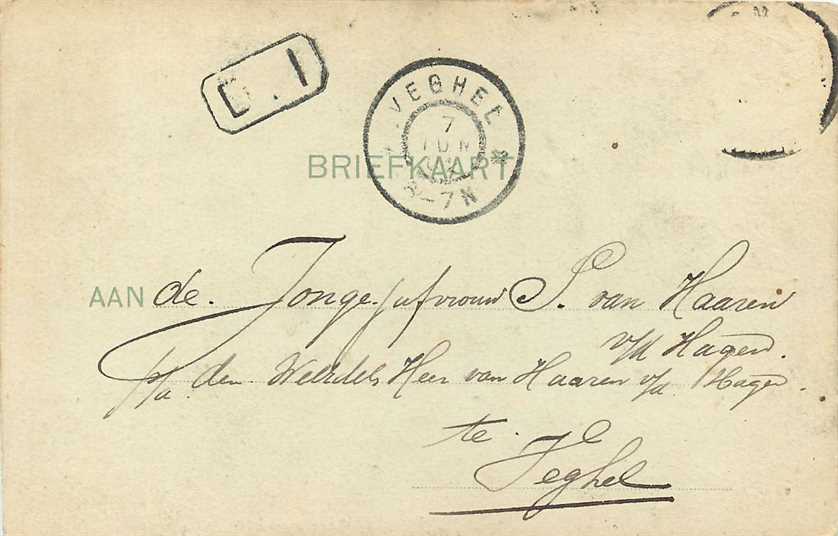 D. I
VEGHEL
7 JUN
6-7N
BRIEFKAART
AAN de Jongejufvrouw S. van Haaren
v/d Hagen.
p/a den Weledels Heer van Haaren v/d Hagen.
te
Veghel